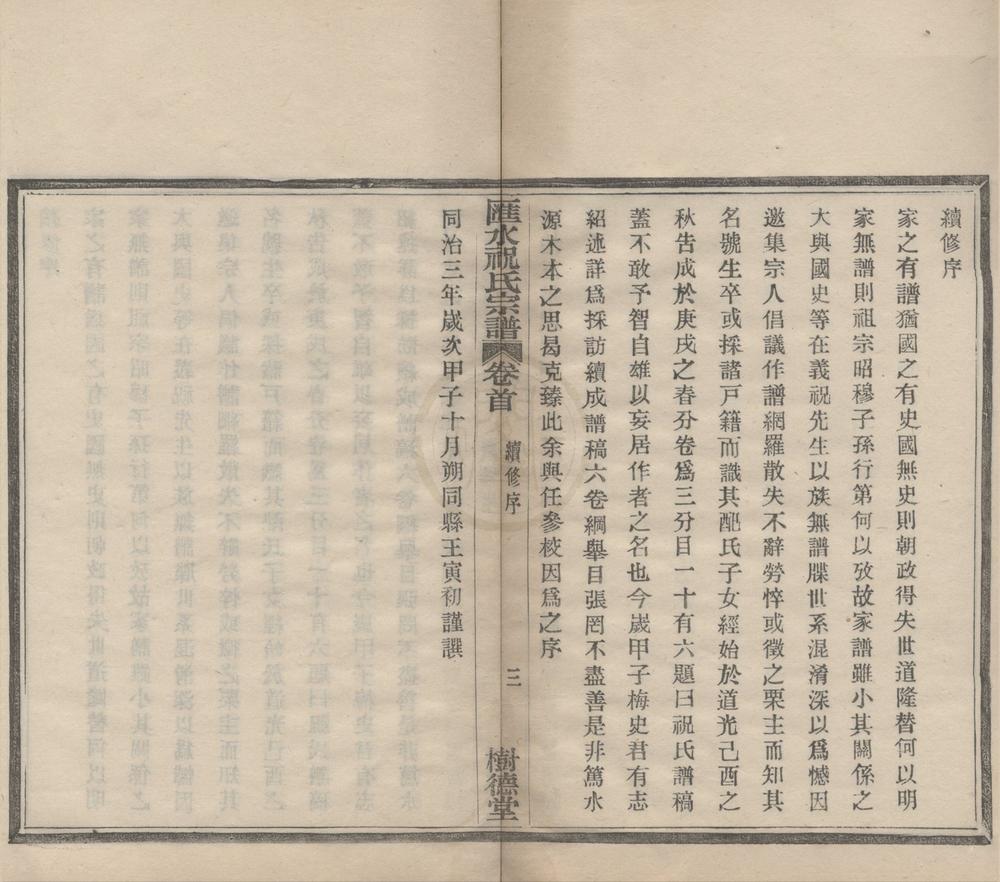 續修序
家之有譜猶國之有史國無史則朝政得失世道隆替何以明
家無譜則祖宗昭穆子孫行第何以攷故家譜雖小其關係之
大與國史等在義祝先生以族無譜牒世系混淆深以爲憾因
邀集宗人倡議作譜網羅散失不辭勞悴或徵之栗主而知其
名號生卒或採諸戸籍而識其配氏子女經始於道光己酉之
秋告成於庚戌之春分卷爲三分目一十有六題曰祝氏譜稿
蓋不敢予智自雄以妄居作者之名也今歲甲子梅史君有志
紹述詳爲採訪續成譜稿六卷綱舉目張罔不盡善是非篤水
源木本之思曷克臻此余與任參校因爲之序
匯水祝氏宗譜 卷首 續修序 三 樹德堂
同治三年歲次甲子十月朔同縣王寅初謹譔